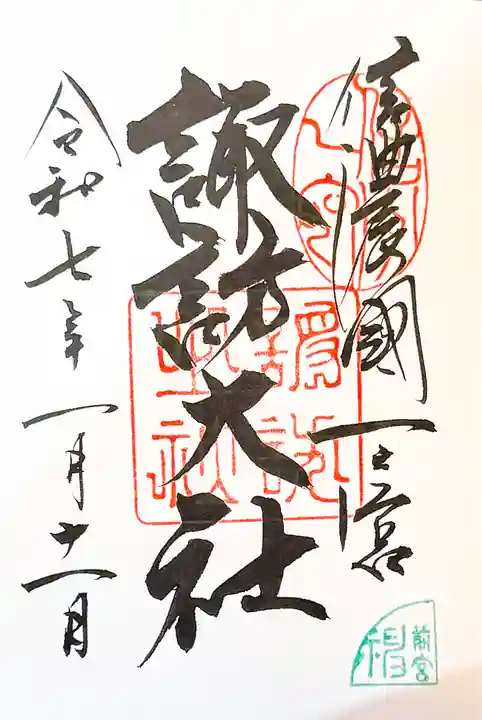 信濃國一之宮
諏訪大社
令和七年一月十一月
前宮